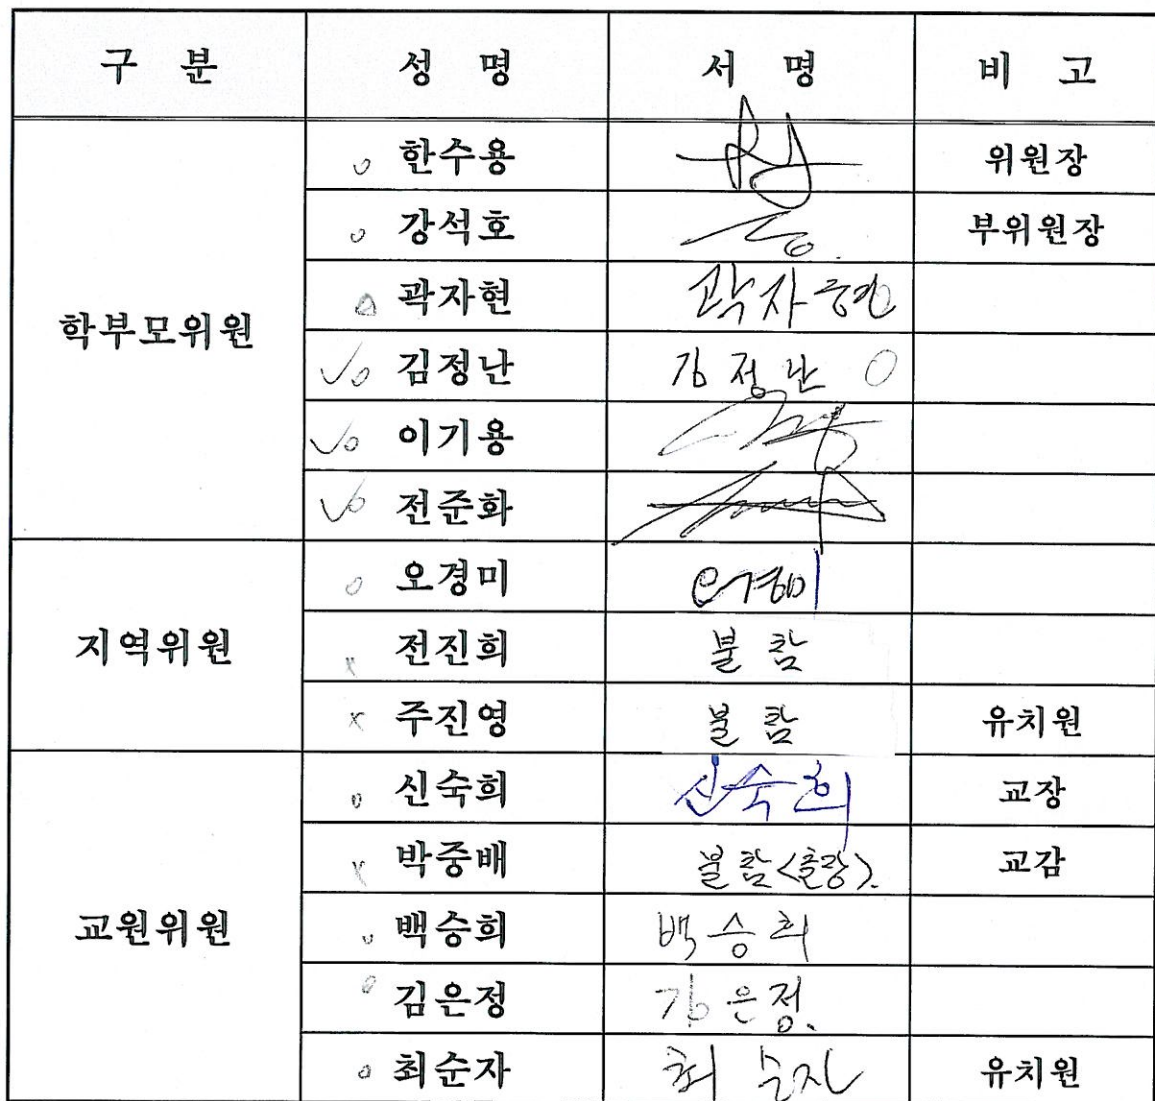 구 분 성 명 서 명 비 고
학부모위원
한수용 위원장
강석호 부위원장
곽자현 곽자현
김정난 김정난
이기용
전준화
지역위원
오경미 오경미
전진희 불참
주진영 불참 유치원
교원위원
신숙희 신숙희 교장
박중배 불참<출장>. 교감
백승희 백승희
김은정 김은정.
최순자 최순자 유치원